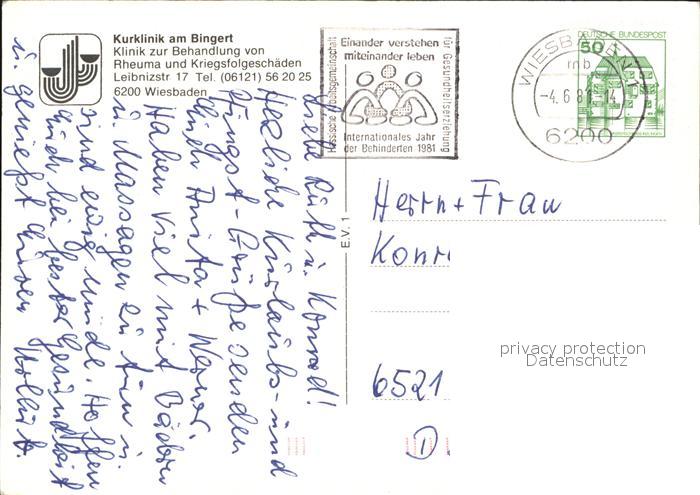 Kurklinik am Bingert
Klinik zur Behandlung von
Rheuma und Kriegsfolgeschäden
Leibnizstr 17 Tel. (06121) 56 20 25
6200 Wiesbaden
Hessische Arbeitsgemeinschaft
Einander verstehen
miteinander leben
für Gesundheitserziehung
Internationales Jahr
der Behinderten 1981
WIESBADEN
mb
-4.6.81-14
6200
DEUTSCHE BUNDESPOST
50
Liebe Ruth u. Konrad!
Herzliche Kurlaubs- und
Pfingst-Grüße senden
Euch Anita + Werner.
Haben viel mit Bädern
u. Massagen zu tun u.
sind ewig müde. Hoffen
Euch bei bester Gesundheit
u. genießt Euren Urlaub.
E.V. 1
Herrn + Frau
Konr
6521
privacy protection
Datenschutz